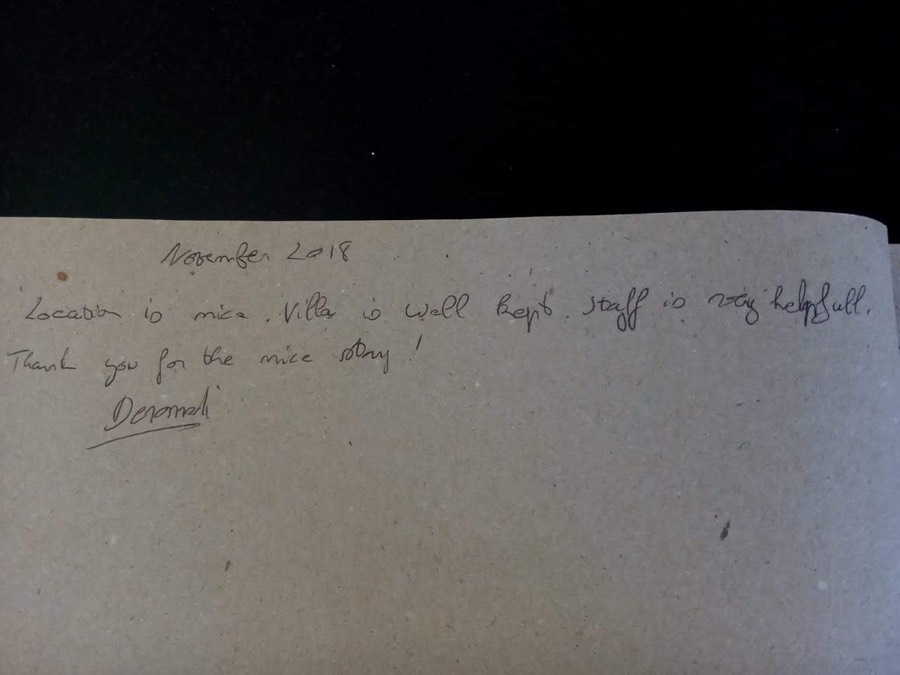 November 2018
Location is nice. Villa is well kept. Staff is very helpfull.
Thank you for the nice stay!